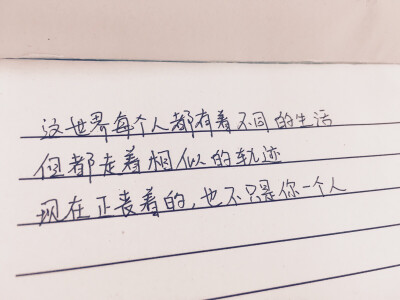 这世界每个人都有着不同的生活
但都走着相似的轨迹
现在正丧着的，也不只是你一个人